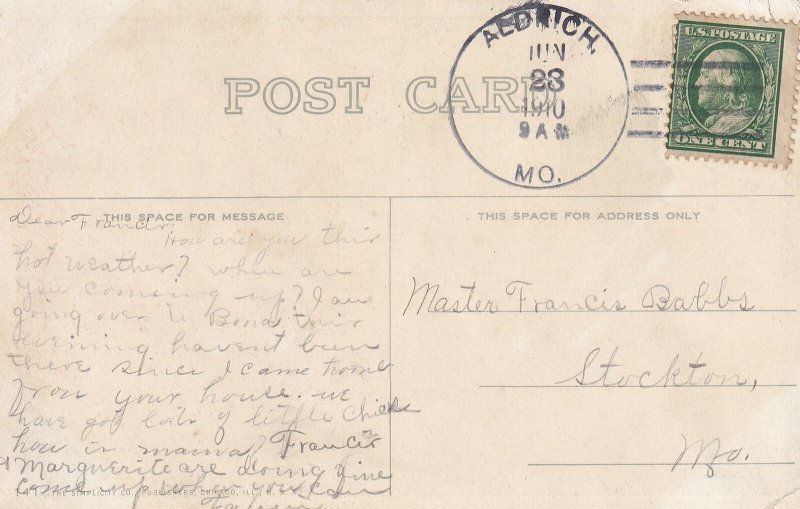 ALDRICH,
JUN
23
1910
9 AM
MO.
U.S. POSTAGE
ONE CENT
POST CARD
THIS SPACE FOR MESSAGE
THIS SPACE FOR ADDRESS ONLY
Dear Francis;
How are you this
hot weather? when are
you comeing up? I am
going over to Bona this
evening havent been
there since I came home
from your house. we
have got lots of little chicks
how is mama? Francis
Marguerite are doing fine
come up when you can
Master Francis Babbs
Stockton,
Mo.
THE SIMPLICITY CO., PUBLISHERS, CHICAGO, ILL., U. S. A.